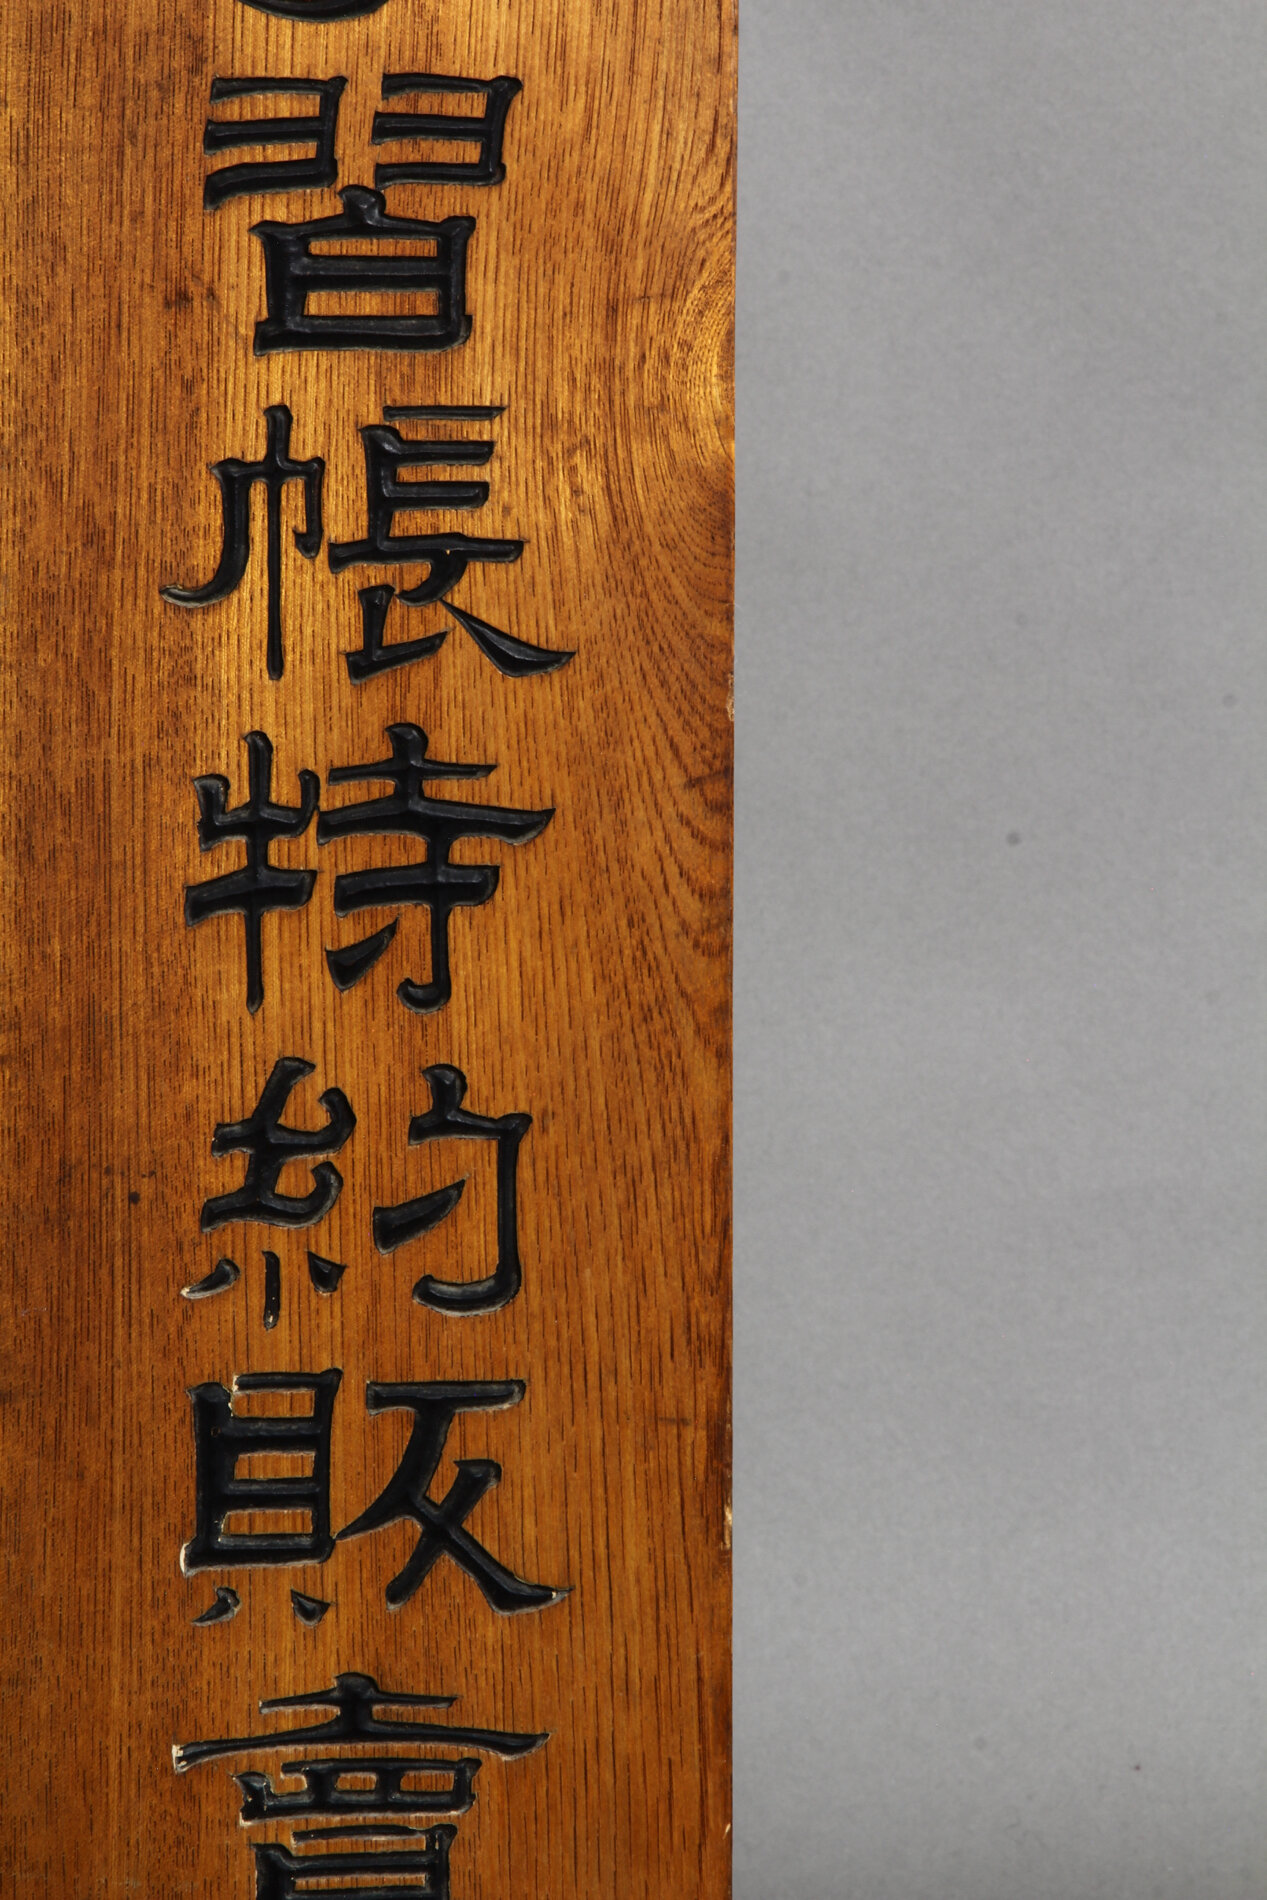 習帳特約販賣